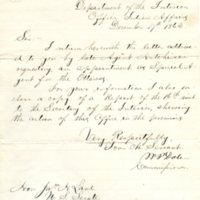 Department of the Interior
Office Indian Affairs
December 19th 1862
Sir
I return herewith the letter addressed
to you by late Agent Hutchinson
requesting an appointment as Special A
gent for the Ottawas.
For your information I also en
close a copy of a Report of the 18th inst
to the Secretary of the Interior, showing
the action of this Office in the premises
Very Respectfully
Your Obt Servant
Wm P Dole
Commissioner
Hon Jas H Lane
U S Senate